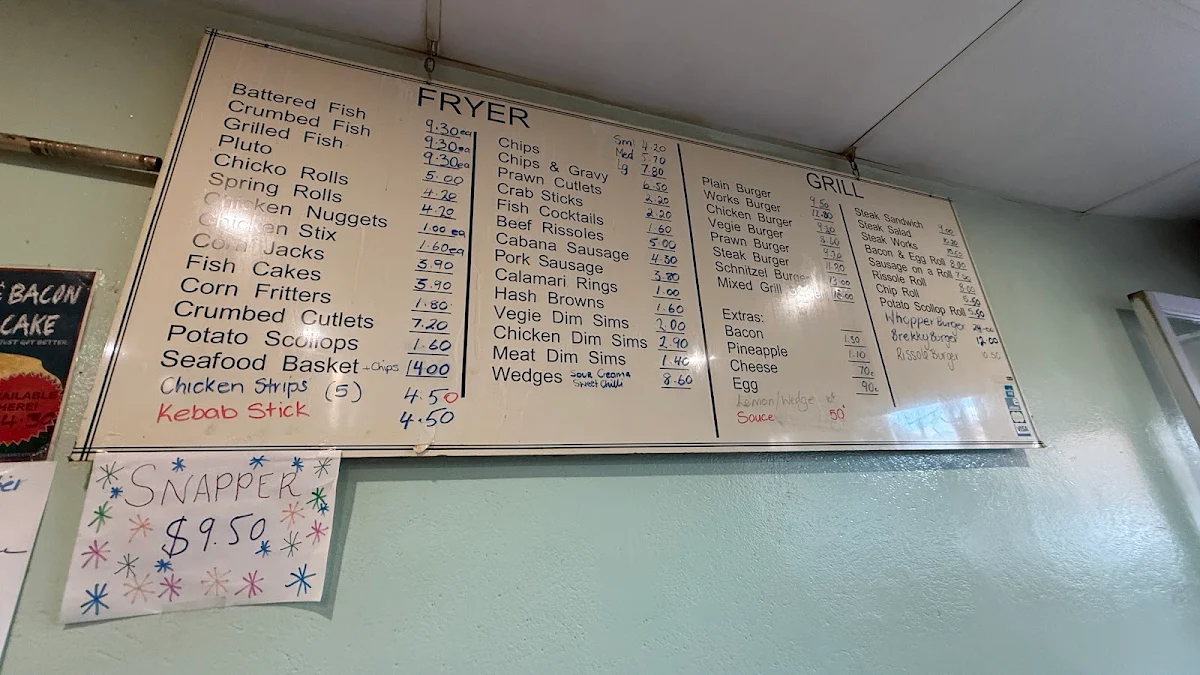 BACON
CAKE
JUST GOT BETTER
AVAILABLE
HERE!
FRYER
Battered Fish 9.30ea
Crumbed Fish 9.30ea
Grilled Fish 9.30ea
Pluto 5.00
Chicko Rolls 4.20
Spring Rolls 4.20
Chicken Nuggets 1.00 ea
Chicken Stix 1.60ea
Corn Jacks 3.90
Fish Cakes 3.90
Corn Fritters 1.80
Crumbed Cutlets 7.20
Potato Scollops 1.60
Seafood Basket + Chips 14.00
Chicken Strips (5) 4.50
Kebab Stick 4.50
Chips Sm 4.20
Med 5.70
Lg 7.80
Chips & Gravy 6.50
Prawn Cutlets 2.20
Crab Sticks 2.20
Fish Cocktails 1.60
Beef Rissoles 5.00
Cabana Sausage 4.50
Pork Sausage 3.80
Calamari Rings 1.00
Hash Browns 1.60
Vegie Dim Sims 2.00
Chicken Dim Sims 2.90
Meat Dim Sims 1.40
Wedges Sour Creama Sweet Chilli 8.60
GRILL
Plain Burger 9.50
Works Burger 12.80
Chicken Burger
Vegie Burger
Prawn Burger
Steak Burger 11.20
Schnitzel Burger 13.00
Mixed Grill
Extras:
Bacon 1.50
Pineapple 1.10
Cheese 70c
Egg 90c
Lemon/Wedge
Sauce 50
Steak Sandwich
Steak Salad
Steak Works
Bacon & Egg Roll
Sausage on a Roll
Rissole Roll
Chip Roll
Potato Scollop Roll 5.60
Whopper Burger
Brekky Burger 12.00
Rissole Burger 10.50
VISA
SNAPPER
$9.50